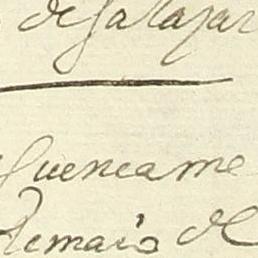 de salazar
Cuencame
Remaio de